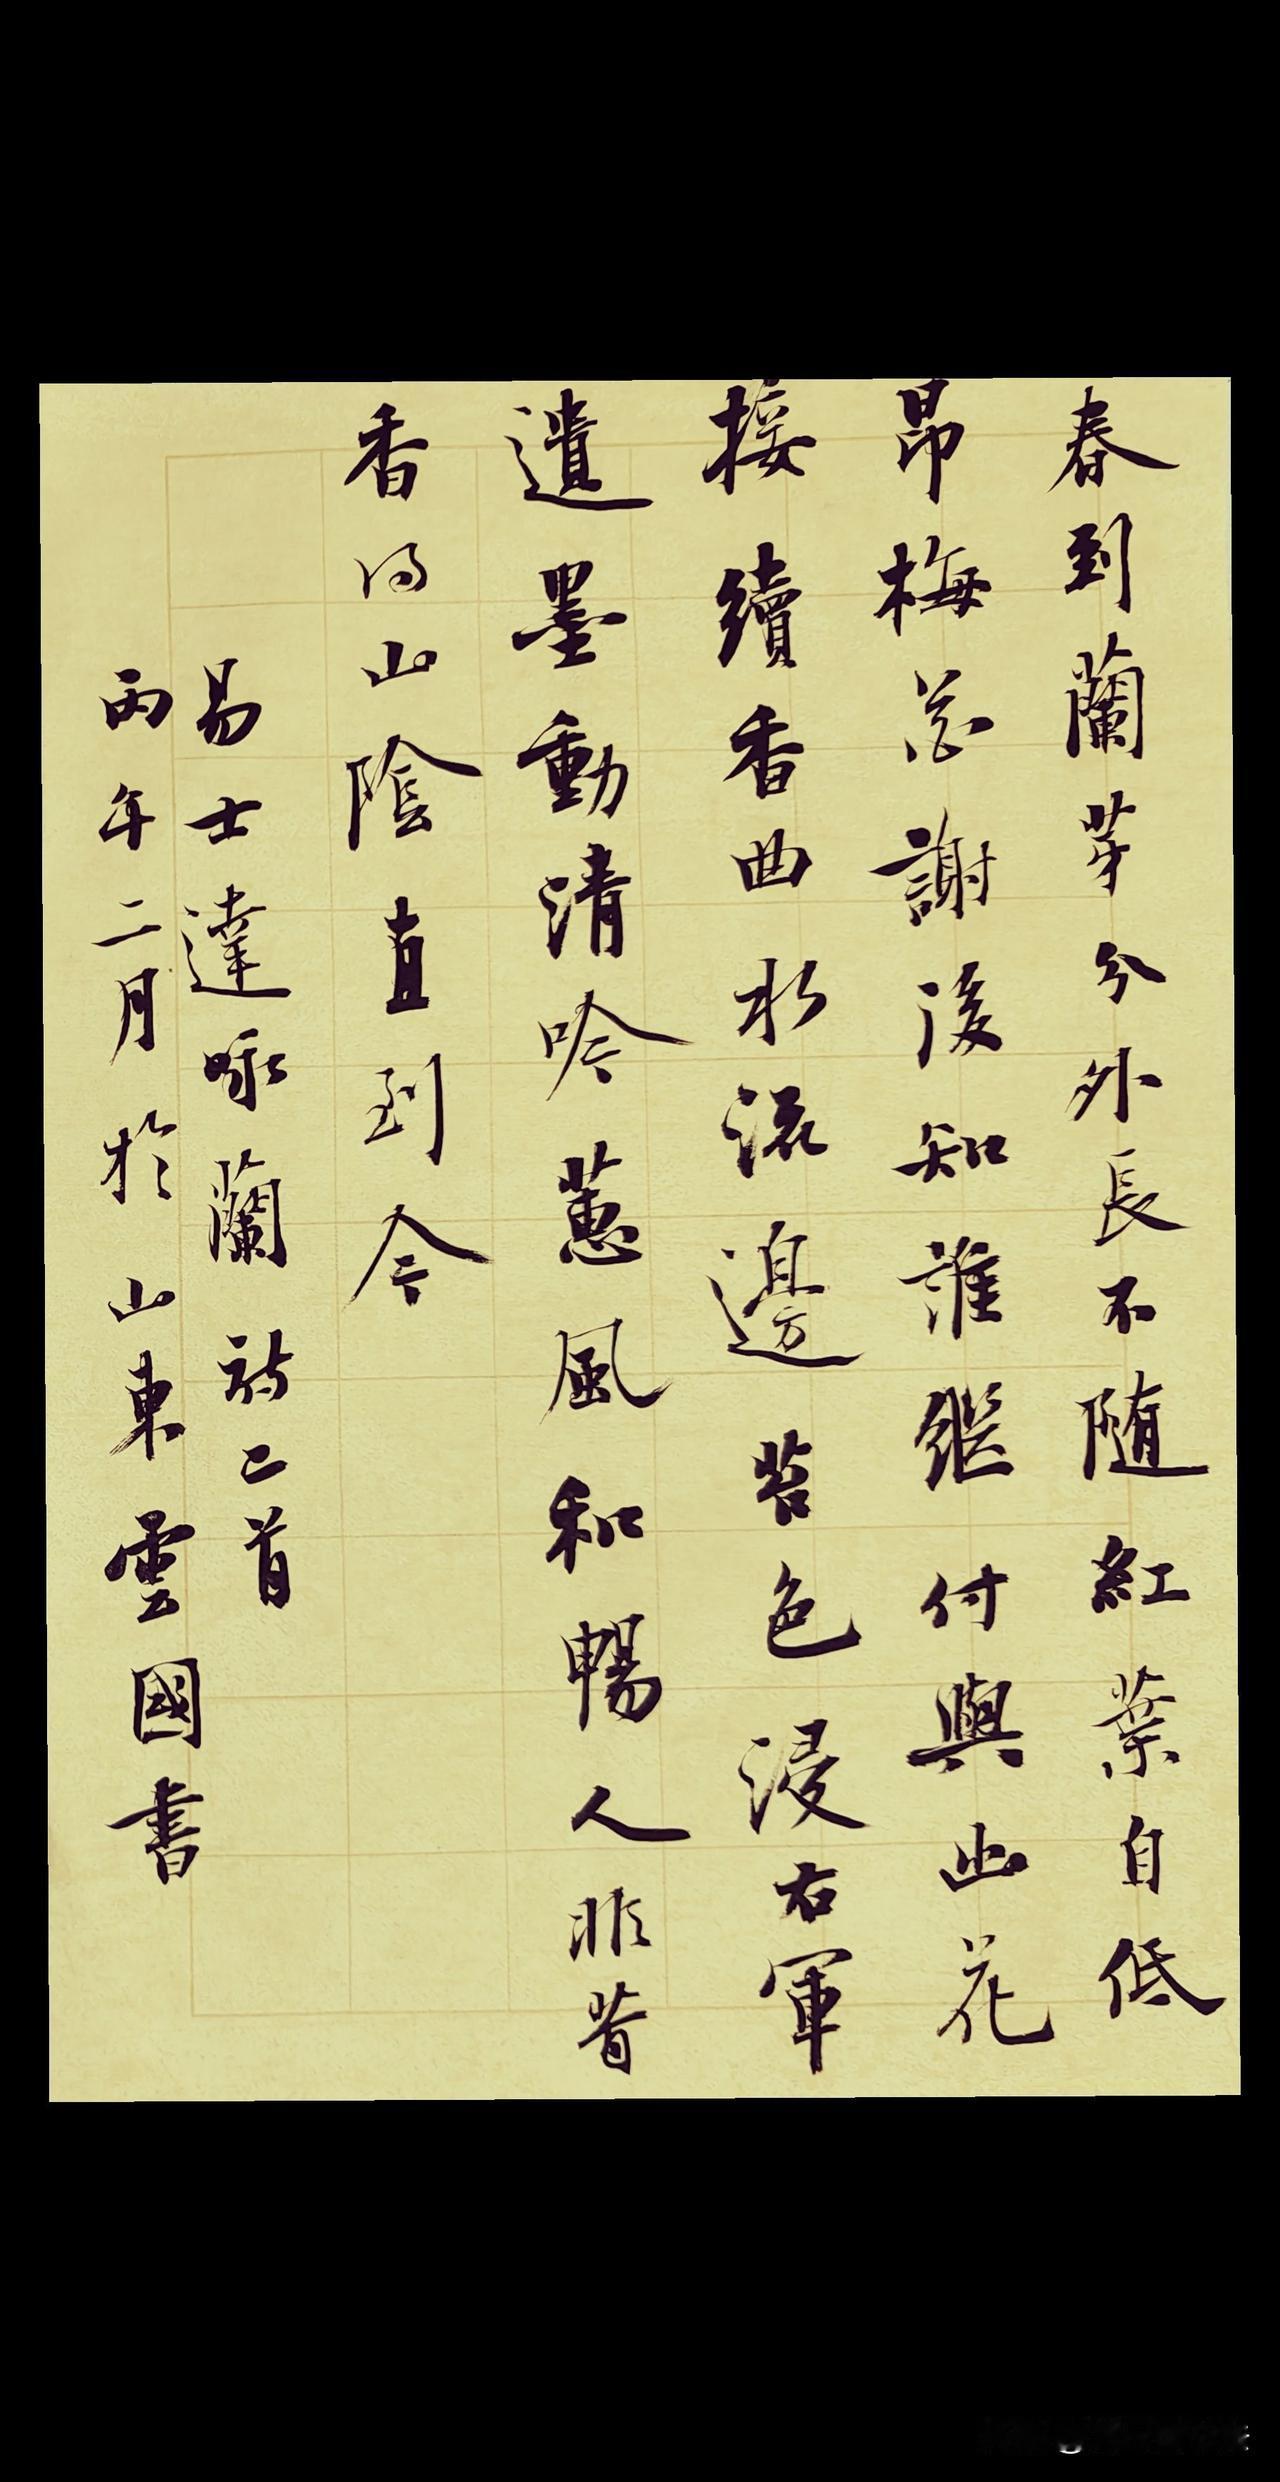 春到蘭芽分外長不隨紅葉自低
昂梅花謝後知誰繼付與此花
接續香曲水流邊苔色浸右軍
遺墨動清吟蕙風和暢人非昔
香得山陰直到今
易士達咏蘭詩二首
丙午二月於山東雲國書